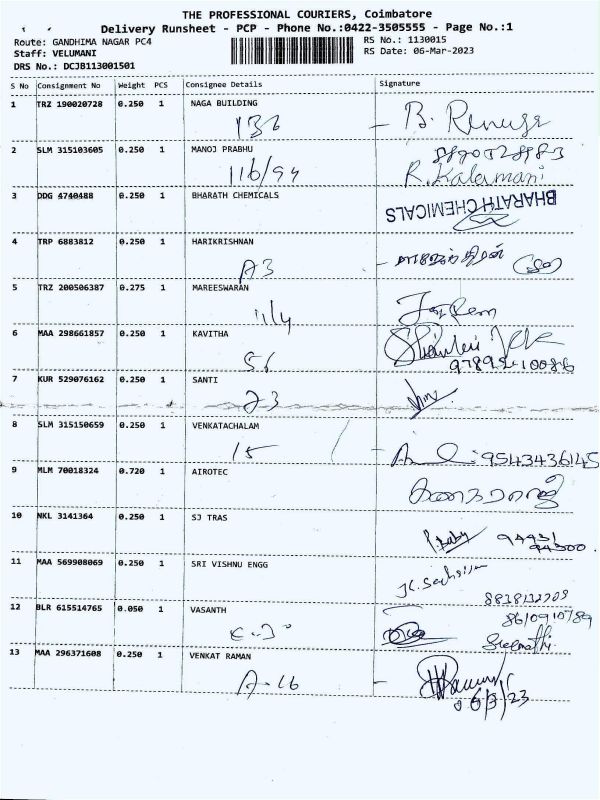 THE PROFESSIONAL COURIERS, Coimbatore
Delivery Runsheet - PCP - Phone No.:0422-3505555 - Page No.:1
Route: GANDHIMA NAGAR PC4 RS No.: 1130015
Staff: VELUMANI RS Date: 06-Mar-2023
DRS No.: DCJB113001501
S No Consignment No Weight PCS Consignee Details Signature
1 TRZ 190020728 0.250 1 NAGA BUILDING
136 - B. Renuga
2 SLM 315103605 0.250 1 MANOJ PRABHU 8870028983
116/94 R. Kalamani
3 DDG 4740488 0.250 1 BHARATH CHEMICALS BHARATH CHEMICALS
4 TRP 6883812 0.250 1 HARIKRISHNAN
A3
5 TRZ 200506387 0.275 1 MAREESWARAN
11/4
6 MAA 298661857 0.250 1 KAVITHA
56
7 KUR 529076162 0.250 1 SANTI
23
8 SLM 315150659 0.250 1 VENKATACHALAM
15 9543436145
9 MLM 70018324 0.720 1 AIROTEC
10 NKL 3141364 0.250 1 SJ TRAS
P. Baby 94431
94300
11 MAA 569908069 0.250 1 SRI VISHNU ENGG
12 BLR 615514765 0.050 1 VASANTH
13 MAA 296371608 0.250 1 VENKAT RAMAN
A-16
06/3/23